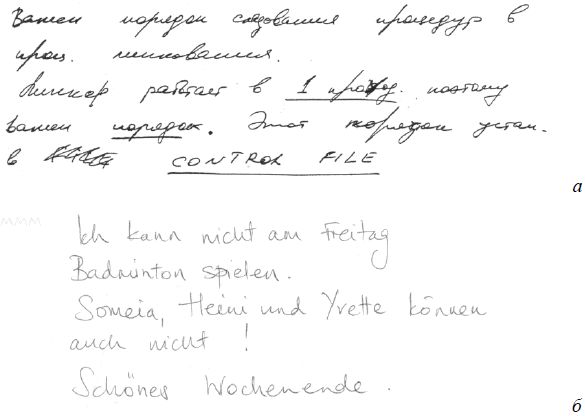 Важен порядок следования процедур в
проц. линкования.
Линкер работает в 1 проход. поэтому
важен порядок. Этот порядок устан.
в CONTROL FILE
а
Ich kann nicht am Freitag
Badminton spielen.
Someia, Heini und Yvette können
auch nicht!
Schönes Wochenende.
б